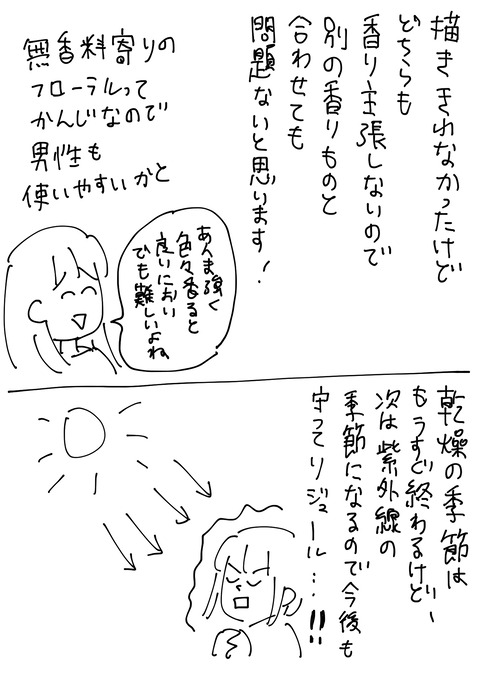 描ききれなかったけど
どちらも
香り主張しないので
別の香りものと
合わせても
問題ないと思います！
無香料寄りの
フローラルって
かんじなので
男性も
使いやすいかと
あんま強く
色々香ると
良いにおい
でも難しいよね
乾燥の季節は
もうすぐ終わるけどー
次は紫外線の
季節になるので今後も
守ってリジュール…!!